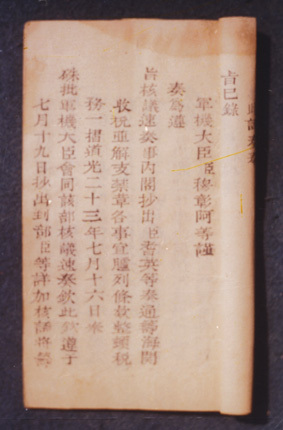 旨已錄
軍機大臣臣穆彰阿等謹
奏爲遵
旨核議速奏事內閣抄出臣耆英等奏通籌海關
收稅並解支禁革各事宜臚列條款整頓稅
務一摺道光二十三年七月十六日奉
硃批軍機大臣會同該部核議速奏欽此欽遵于
七月十九日抄出到部臣等詳加核議